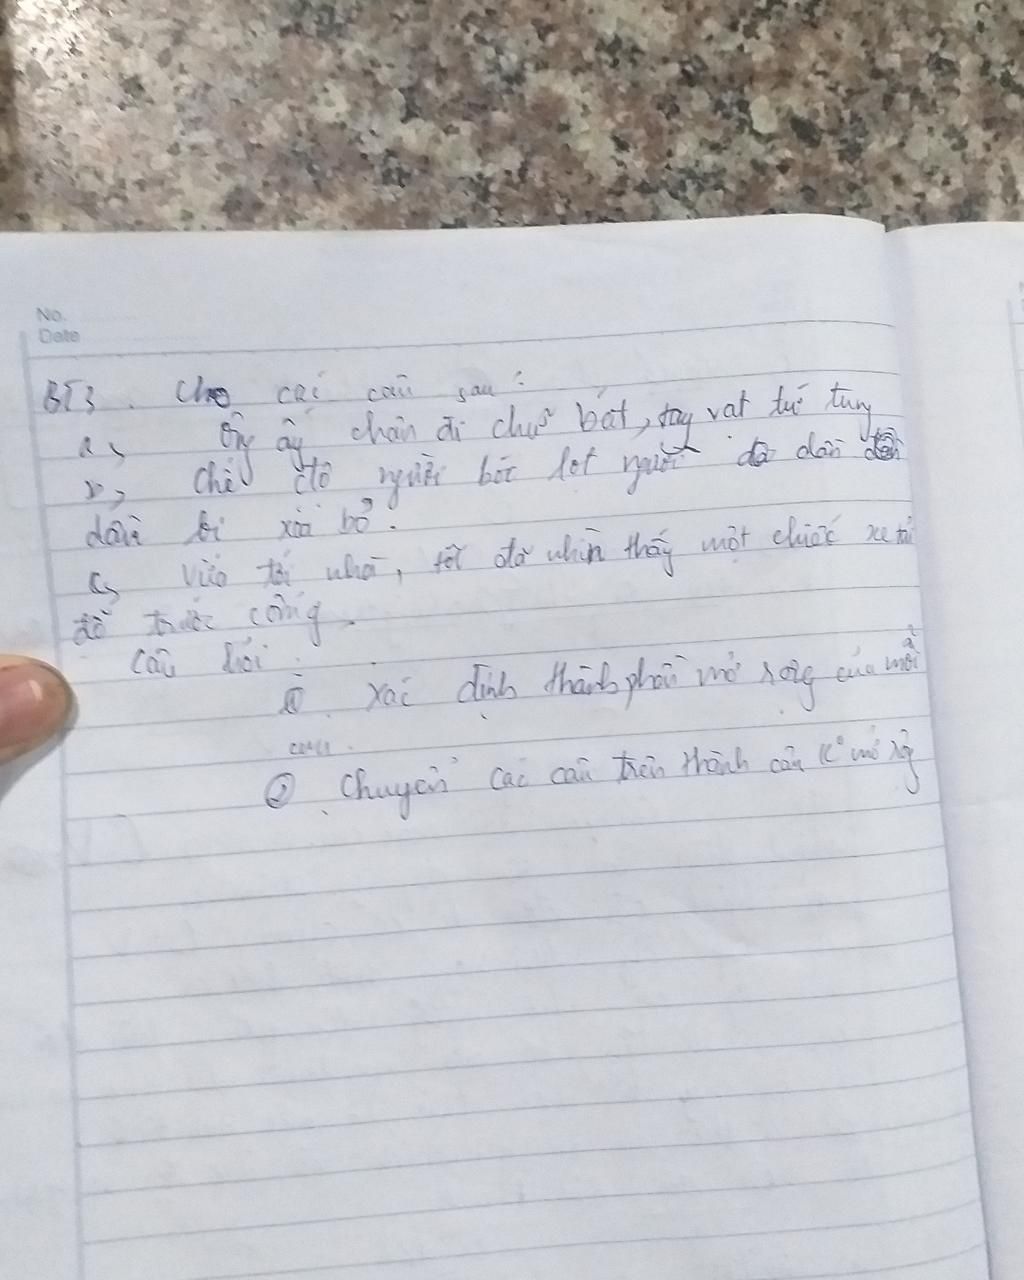 No.
Date
BT3. Cho các câu sau:
a, Ông ấy chân đi chữ bát, tay vat tứ tung
b, Chế độ người bóc lột người đã dần
dần bị xóa bỏ.
c, Vừa tới nhà, tôi đã nhìn thấy một chiếc xe tải
đỗ trước cổng.
Câu hỏi:
① Xác định thành phần mở rộng của mỗi
câu.
② Chuyển các câu trên thành câu k° mở rộng